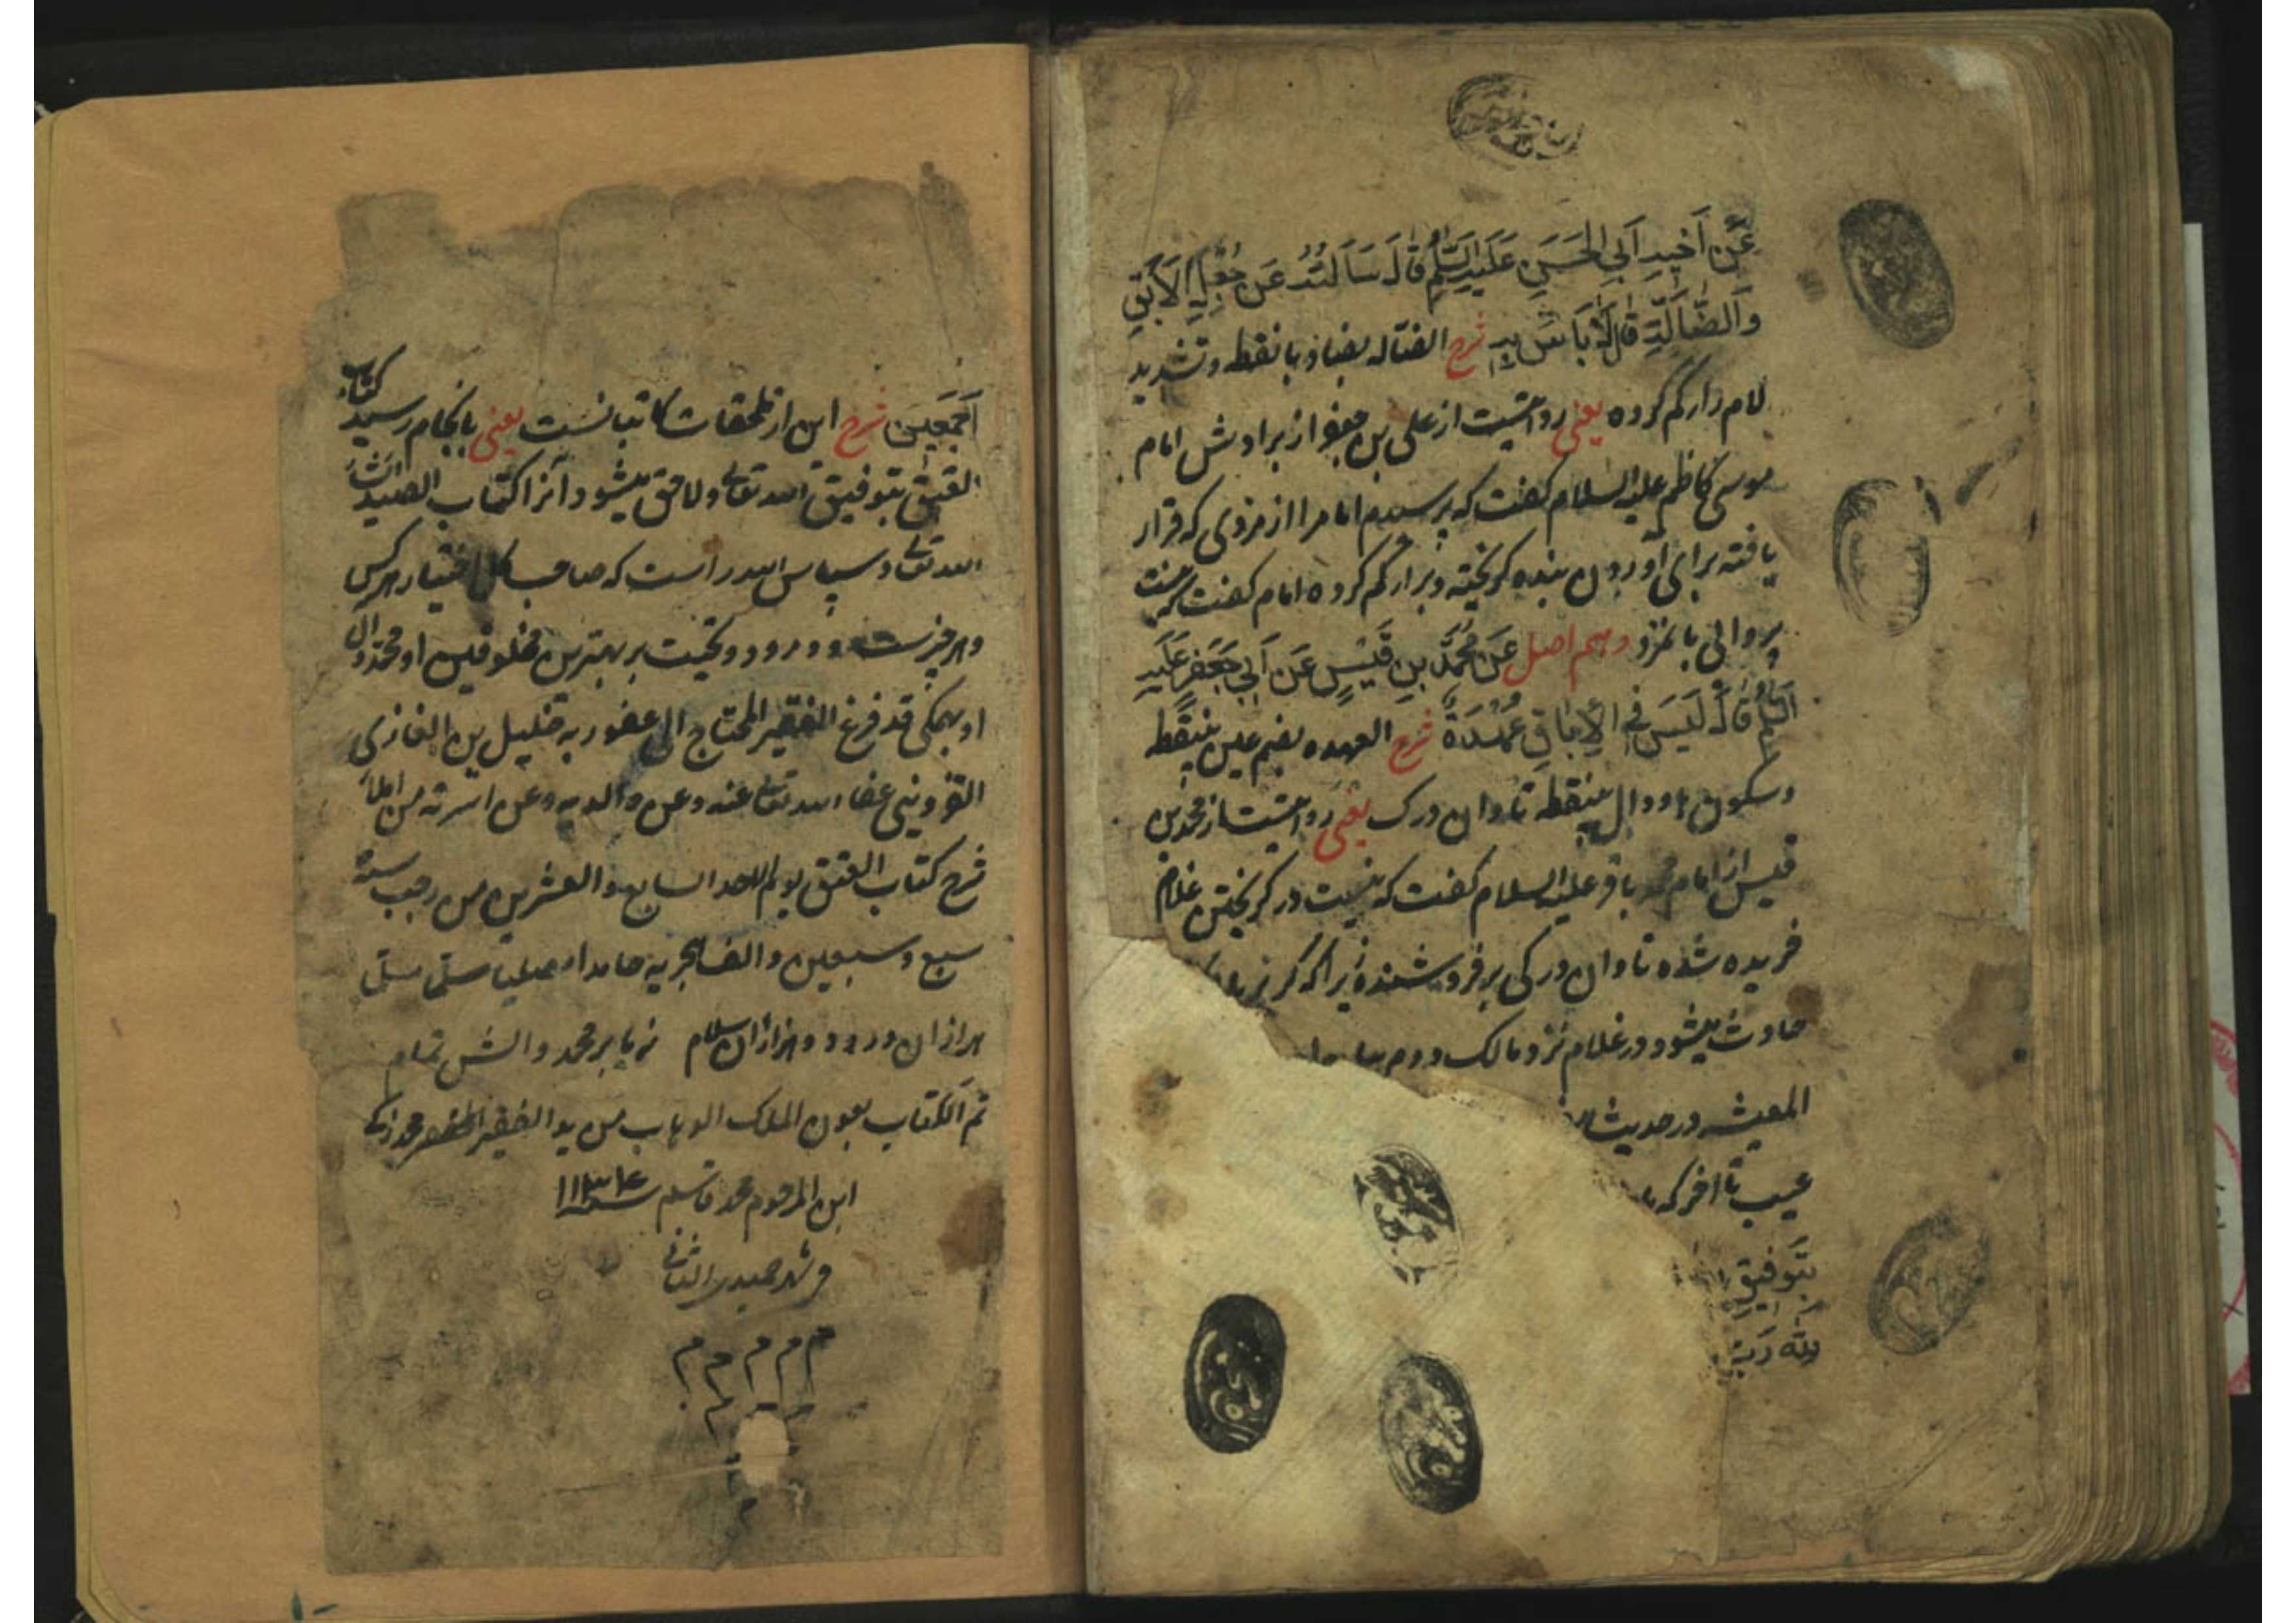 عَنْ أَخِيهِ أَبِي الْحَسَنِ عَلَيْهِ السَّلَامُ قَالَ سَأَلْتُهُ عَنْ جُعْلِ الْآبِقِ
وَالضَّالَّةِ قَالَ لَا بَأْسَ بِهِ شرح الضالّه بضاد بانقطه و تشدید
لام زار گم کرده یعنی روایتست از علی بن جعفر از برادرش امام
موسی کاظم علیه السلام گفت که پرسیدم امام را از مزدی که قرار
یافته برای آوردن بنده گریخته و برار گم کرده امام گفت که نیست
پروائی بامزد دهم اصل عَنْ مُحَمَّدِ بْنِ قَيْسٍ عَنْ أَبِي جَعْفَرٍ عَلَيْهِ
السَّلَامُ قَالَ لَيْسَ فِي الْإِبَاقِ عُهْدَةٌ شرح العهده بضم عین بینقطه
و سکون ها و دال بینقطه تاوان درک یعنی روایتست از محمد بن
قیس از امام محمد باقر علیه السلام گفت که نیست در گریختن غلام
خریده شده تاوان درکی بر فروشنده زیرا که گریز
حادث میشود در غلام نزد مالک دوم
المعیشه در حدیث
عیب تا آخر که
بِتَوْفِيقِ
لِلَّهِ رَبِّ
أَجْمَعِينَ شرح این از ملحقات کاتبانست یعنی بانجام رسید کتاب
العتق بتوفیق الله تعالی و لاحق میشود آنرا کتاب الصید ان شاء
الله تعالی و سپاس الله راست که صاحب کل اختیار هر کس
و هر چیزست و درود و تحیت بر بهترین مخلوقین او محمد و آل
او همگی قد فرغ الفقیر المحتاج الی عفو ربه خلیل بن الغازی
القزوینی عفا الله تعالی عنه و عن والدیه و عن اسرته من املاء
شرح کتاب العتق یوم الاحد السابع و العشرین من رجب سنة
سبع و سبعین و الف هجریه حامدا مصلیا مسلما
هزاران درود و هزاران سلام ز ما بر محمد و آلش تمام
تم الکتاب بعون الملک الوهاب من ید الفقیر الحقیر محمد زکی
ابن المرحوم محمد قاسم